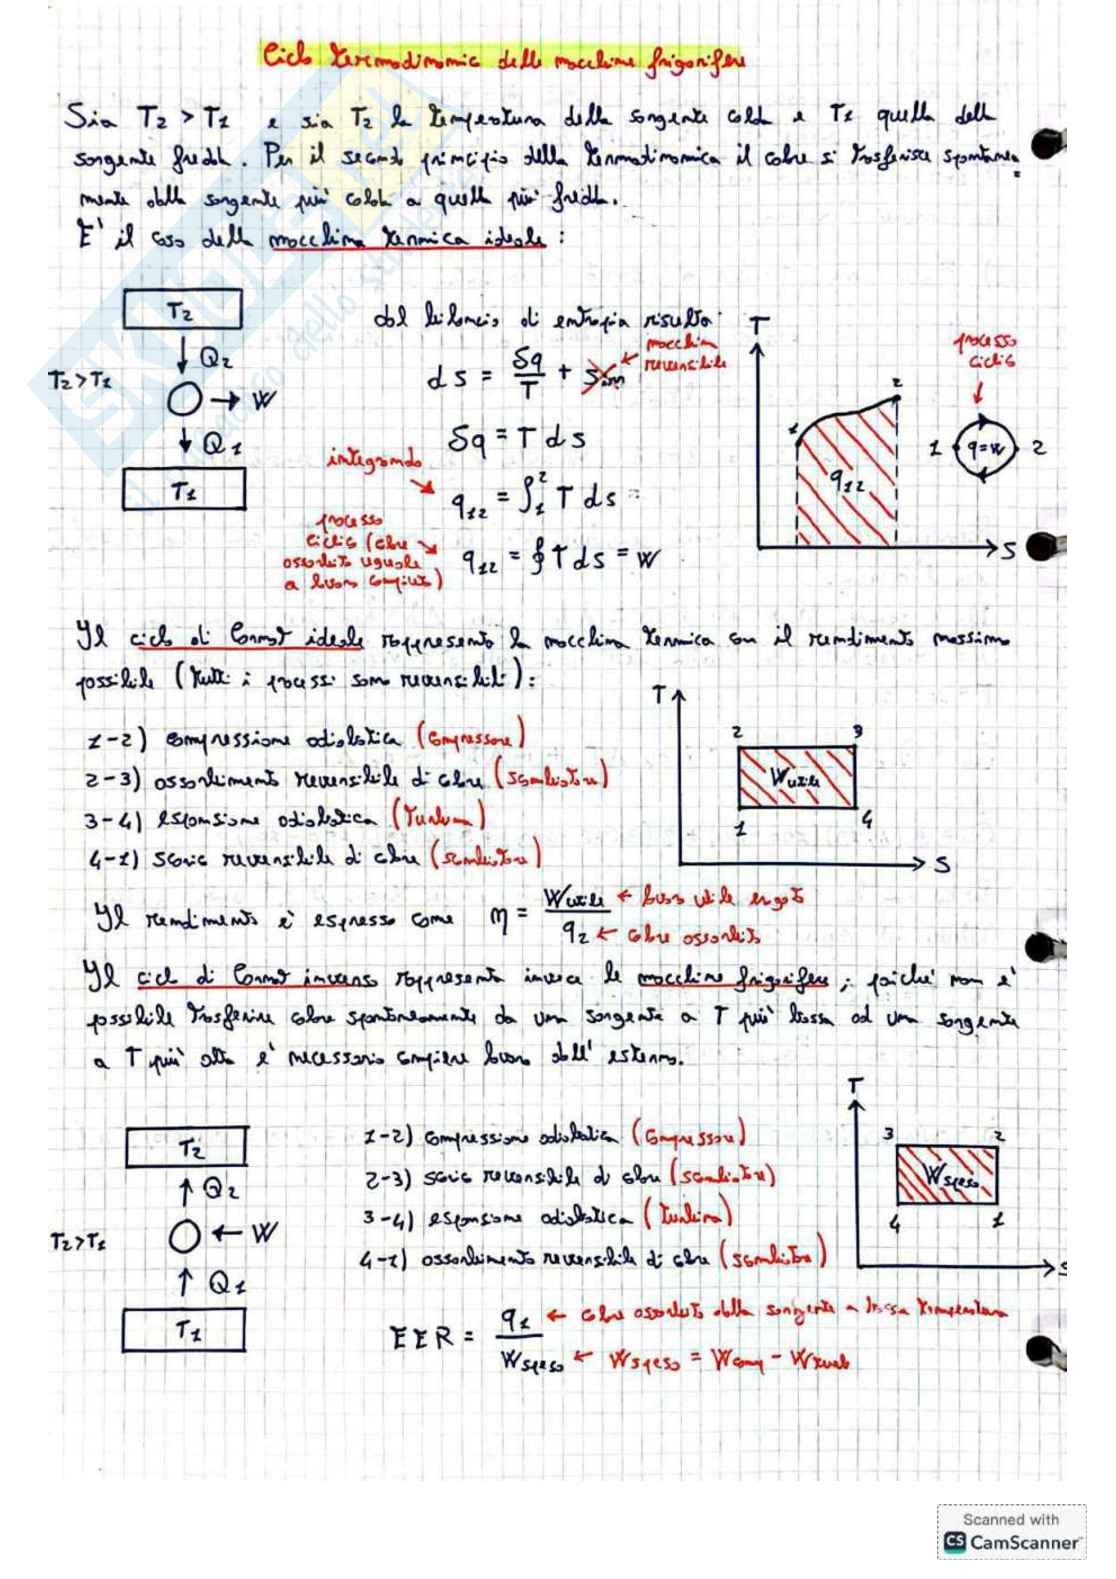 Ciclo termodinamico delle macchine frigorifere
Sia T2 > T1 e sia T2 la temperatura della sorgente calda e T1 quella della
sorgente fredda. Per il secondo principio della termodinamica il calore si trasferisce spontanea=
mente dalla sorgente più calda a quella più fredda.
E' il caso della macchina termica ideale:
T2
Q2
T2>T1
W
Q1
T1
dal bilancio di entropia risulta:
ds = δq/T + sim
macchina
reversibile
δq = T ds
integrando
q12 = ∫₁² T ds =
processo
ciclico (calore
assorbito uguale
a lavoro compiuto)
q12 = ∮ T ds = W
T
1
2
q12
S
processo
ciclico
1 q=w 2
Il ciclo di Carnot ideale rappresenta la macchina termica con il rendimento massimo
possibile (tutti i processi sono reversibili):
1-2) compressione adiabatica (compressore)
2-3) assorbimento reversibile di calore (scambiatore)
3-4) espansione adiabatica (turbina)
4-1) scarico reversibile di calore (scambiatore)
T
2 3
Wutile
1 4
S
Il rendimento è espresso come η = Wutile / q2
← lavoro utile erogato
← calore assorbito
Il ciclo di Carnot inverso rappresenta invece le macchine frigorifere; poiché non è
possibile trasferire calore spontaneamente da una sorgente a T più bassa ad una sorgente
a T più alta è necessario compiere lavoro dall'esterno.
T2
Q2
T2>T1
W
Q1
T1
1-2) compressione adiabatica (compressore)
2-3) scarico reversibile di calore (scambiatore)
3-4) espansione adiabatica (turbina)
4-1) assorbimento reversibile di calore (scambiatore)
T
3 2
Wspeso
4 1
S
EER = q1 / Wspeso
← calore assorbito dalla sorgente a bassa temperatura
← Wspeso = Wcomp - Wturb
Scanned with
CS CamScanner